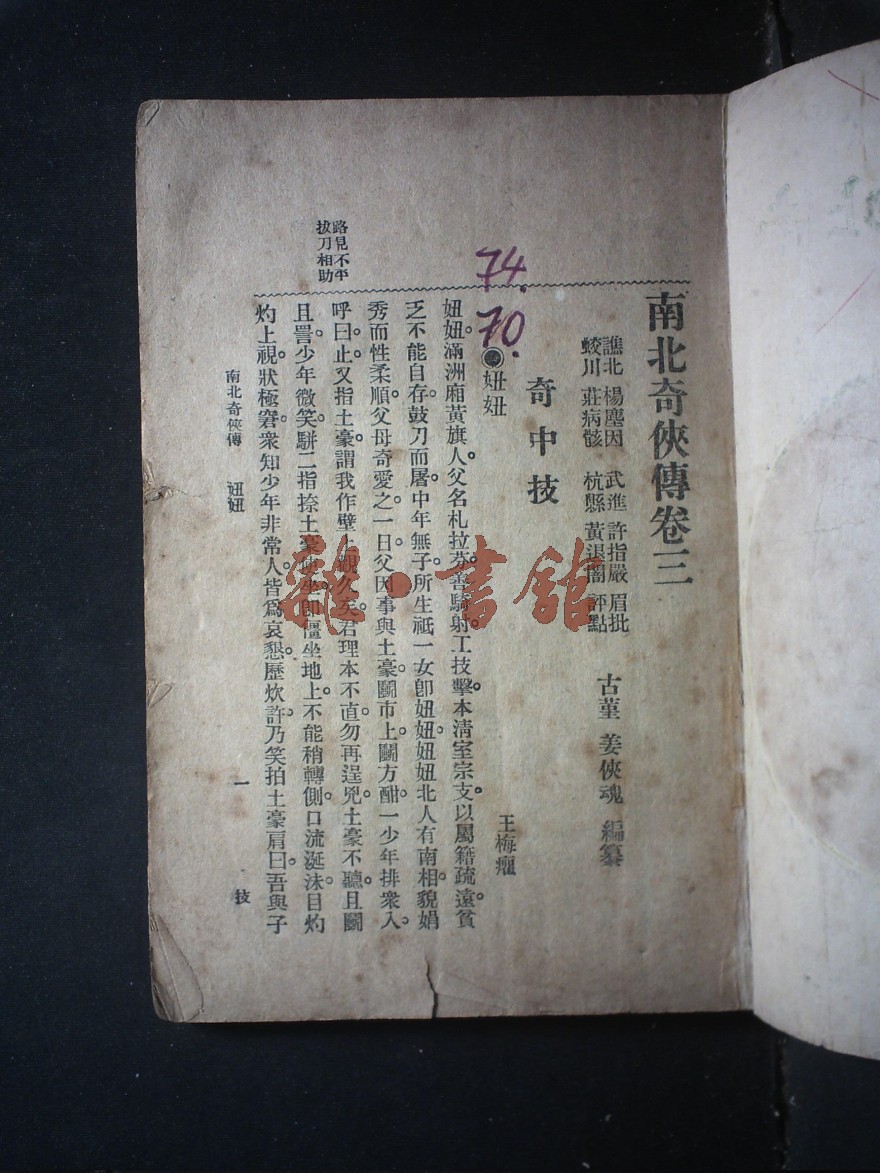 南北奇俠傳卷三
譙北 楊塵因 武進 許指嚴 眉批
蛟川 莊病骸 杭縣 黃退闇 評點
古堇 姜俠魂 編纂
奇中技
妞妞
王梅癯
妞妞。滿洲廂黃旗人。父名札拉芬。善騎射。工技擊。本清室宗支。以屬籍疏遠。貧
乏不能自存。鼓刀而屠。中年無子。所生祇一女。卽妞妞。妞妞北人有南相。貌娟
秀而性柔順。父母奇愛之。一日。父因事與土豪鬭市上。鬭方酣。一少年排衆入。
呼曰。止。又指土豪。謂我作壁上觀久矣。君理本不直。勿再逞兇。土豪不聽。且鬭
且詈。少年微笑。駢二指捺土豪使坐。卽僵坐地上。不能稍轉側。口流涎沬。目灼
灼上視。狀極窘。衆知少年非常人。皆爲哀懇。歷炊許。乃笑拍土豪肩曰。吾與子
路見不平
拔刀相助
南北奇俠傳 妞妞 一 技
74.
70.
龍 書館